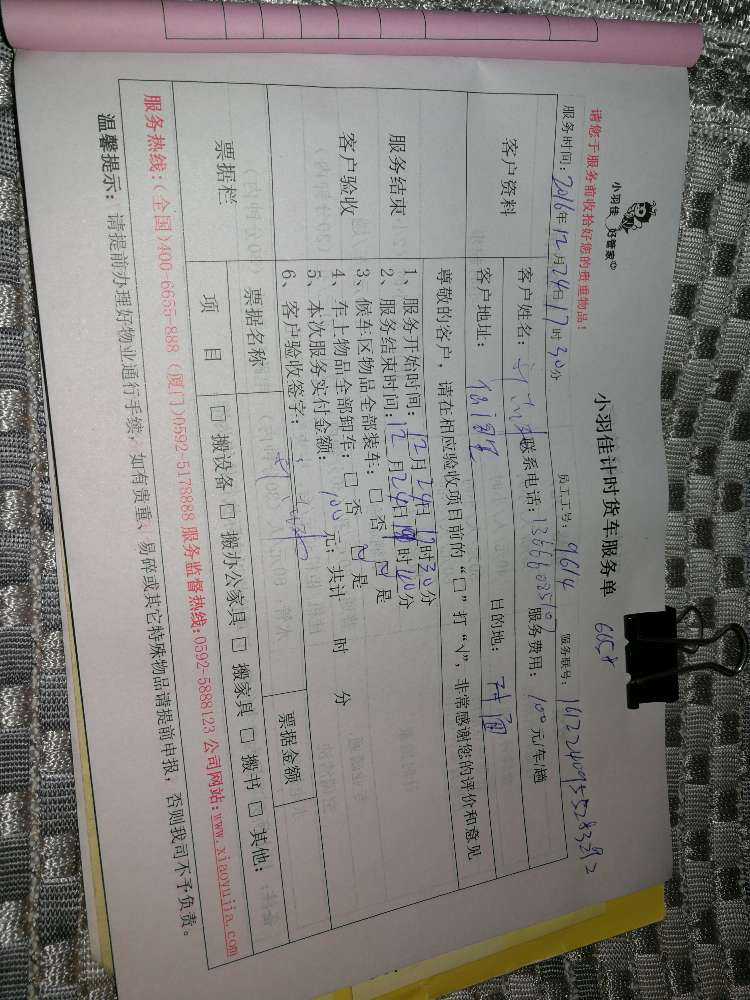 小羽佳 好管家
请您于服务前收拾好您的贵重物品!
小羽佳计时货车服务单
服务时间: 2016年12月24日17时30分 员工工号: 9614 服务联号:
客户资料
客户姓名: 联系电话: 服务费用: 100元/车/趟
客户地址: 目的地:
尊敬的客户, 请在相应验收项目前的“□”打“√”, 非常感谢您的评价和意见
服务结束
客户验收
1、服务开始时间: 12月24日17时30分
2、服务结束时间: 12月24日时分
3、候车区物品全部装车: □ 否 □ 是
4、车上物品全部卸车: □ 否 □ 是
5、本次服务实付金额: 100元; 共计 时 分
6、客户验收签字:
票据栏
票据名称 票据金额
项 目 □ 搬设备 □ 搬办公家具 □ 搬家具 □ 搬书 □ 其他:
服务热线:(全国)400-6655-888 (厦门)0592-5178888 服务监督热线:0592-5888123 公司网站:www.xiaoyujia.com
温馨提示: 请提前办理好物业通行手续, 如有贵重、易碎或其它特殊物品请提前申报, 否则我司不予负责。